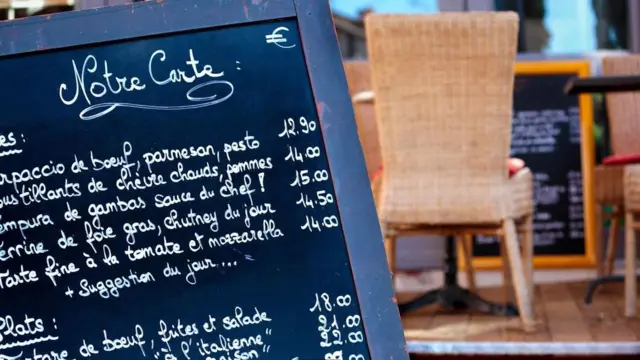 Notre Carte : €
es :
rpaccio de bœuf, parmesan, pesto 12.90
oustillants de chèvre chauds, pommes 14.00
empura de gambas sauce du chef ! 15.00
errine de foie gras, chutney du jour 14.50
Tarte fine à la tomate et mozzarella 14.00
+ Suggestion du jour ...
Plats :
tare de bœuf, frites et salade 18.00
à l'italienne" 21.00
maison" 22.00